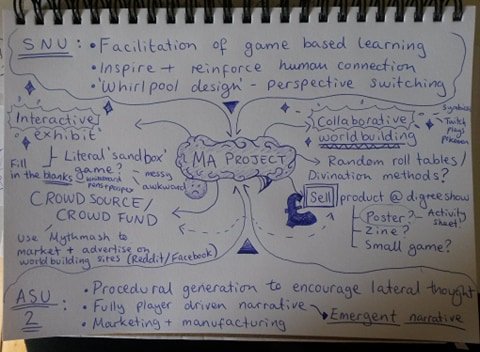 SNU: • Facilitation of game based learning
• Inspire + reinforce human connection
• 'Whirlpool design' - perspective switching
Interactive
exhibit
Literal 'sandbox'
game?
Fill
in the blanks
messy
awkward
CROWD SOURCE/
CROWD FUND
Use 'Mythmash' to
market + advertise on
worldbuilding sites (Reddit/Facebook)
MA PROJECT
Collaborative
worldbuilding
Twitch
plays
Pokemon
Random roll tables/
Divination methods?
£
Sell product @ degree show
Poster? - Activity
sheet?
Zine?
Small game?
ASU
2
: • Procedural generation to encourage lateral thought
• Fully player driven narrative
Emergent narrative
• Marketing + manufacturing